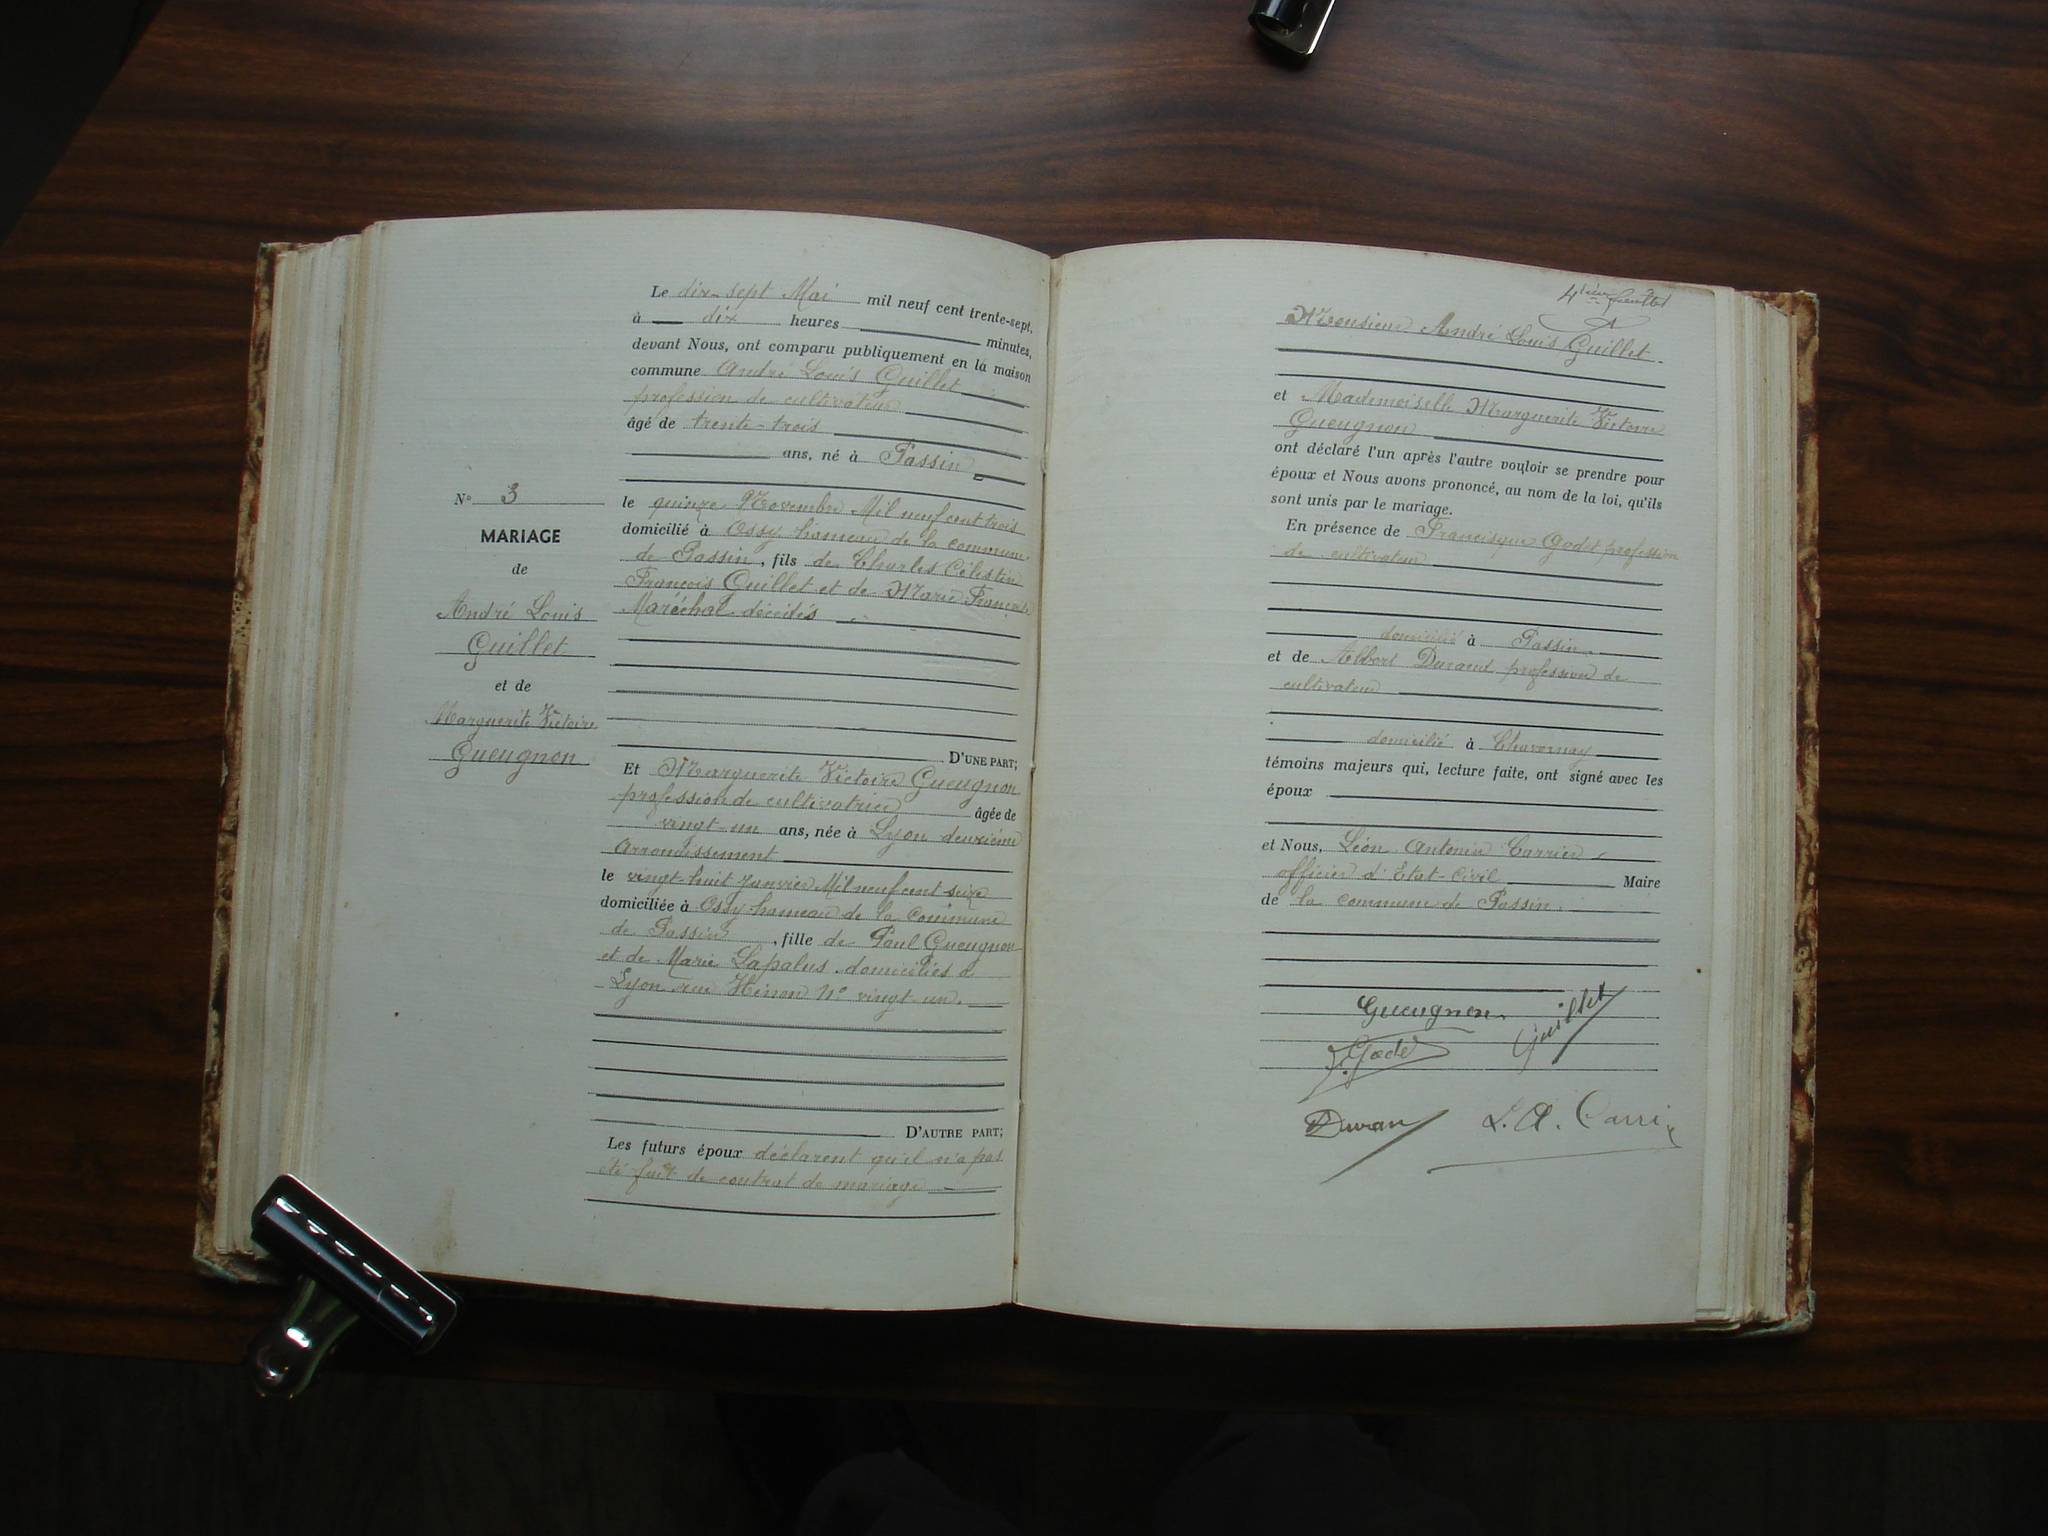 Le dix-sept Mai mil neuf cent trente-sept,
à dix heures minutes,
devant Nous, ont comparu publiquement en la maison
commune André Louis Guillet
profession de cultivateur
âgé de trente-trois
ans, né à Passin
N° 3
MARIAGE
de
André Louis
Guillet
et de
Marguerite Victoire
Gueugnon
le quinze Novembre Mil neuf cent trois
domicilié à Ossy hameau de la commune
de Passin, fils de Charles Célestin
François Guillet et de Marie Françoise
Maréchal décédés
D'UNE PART;
Et Marguerite Victoire Gueugnon
profession de cultivatrice âgée de
vingt-un ans, née à Lyon deuxième
Arrondissement
le vingt-huit Janvier Mil neuf cent seize
domiciliée à Ossy hameau de la Commune
de Passin, fille de Paul Gueugnon
et de Marie Lapalus domiciliés à
Lyon rue Hénon N° vingt-un.
D'AUTRE PART;
Les futurs époux déclarent qu'il n'a pas
été fait de contrat de mariage
Monsieur André Louis Guillet
et Mademoiselle Marguerite Victoire
Gueugnon
ont déclaré l'un après l'autre vouloir se prendre pour
époux et Nous avons prononcé, au nom de la loi, qu'ils
sont unis par le mariage.
En présence de Francisque Godet profession
de cultivateur
domicilié à Passin.
et de Albert Durand profession de
cultivateur
domicilié à Chavornay
témoins majeurs qui, lecture faite, ont signé avec les
époux
et Nous, Léon Antonin Carrier
officier d'Etat-Civil Maire
de la commune de Passin.
Gueugnon Guillet
F. Godet
Duran L. A. Carri